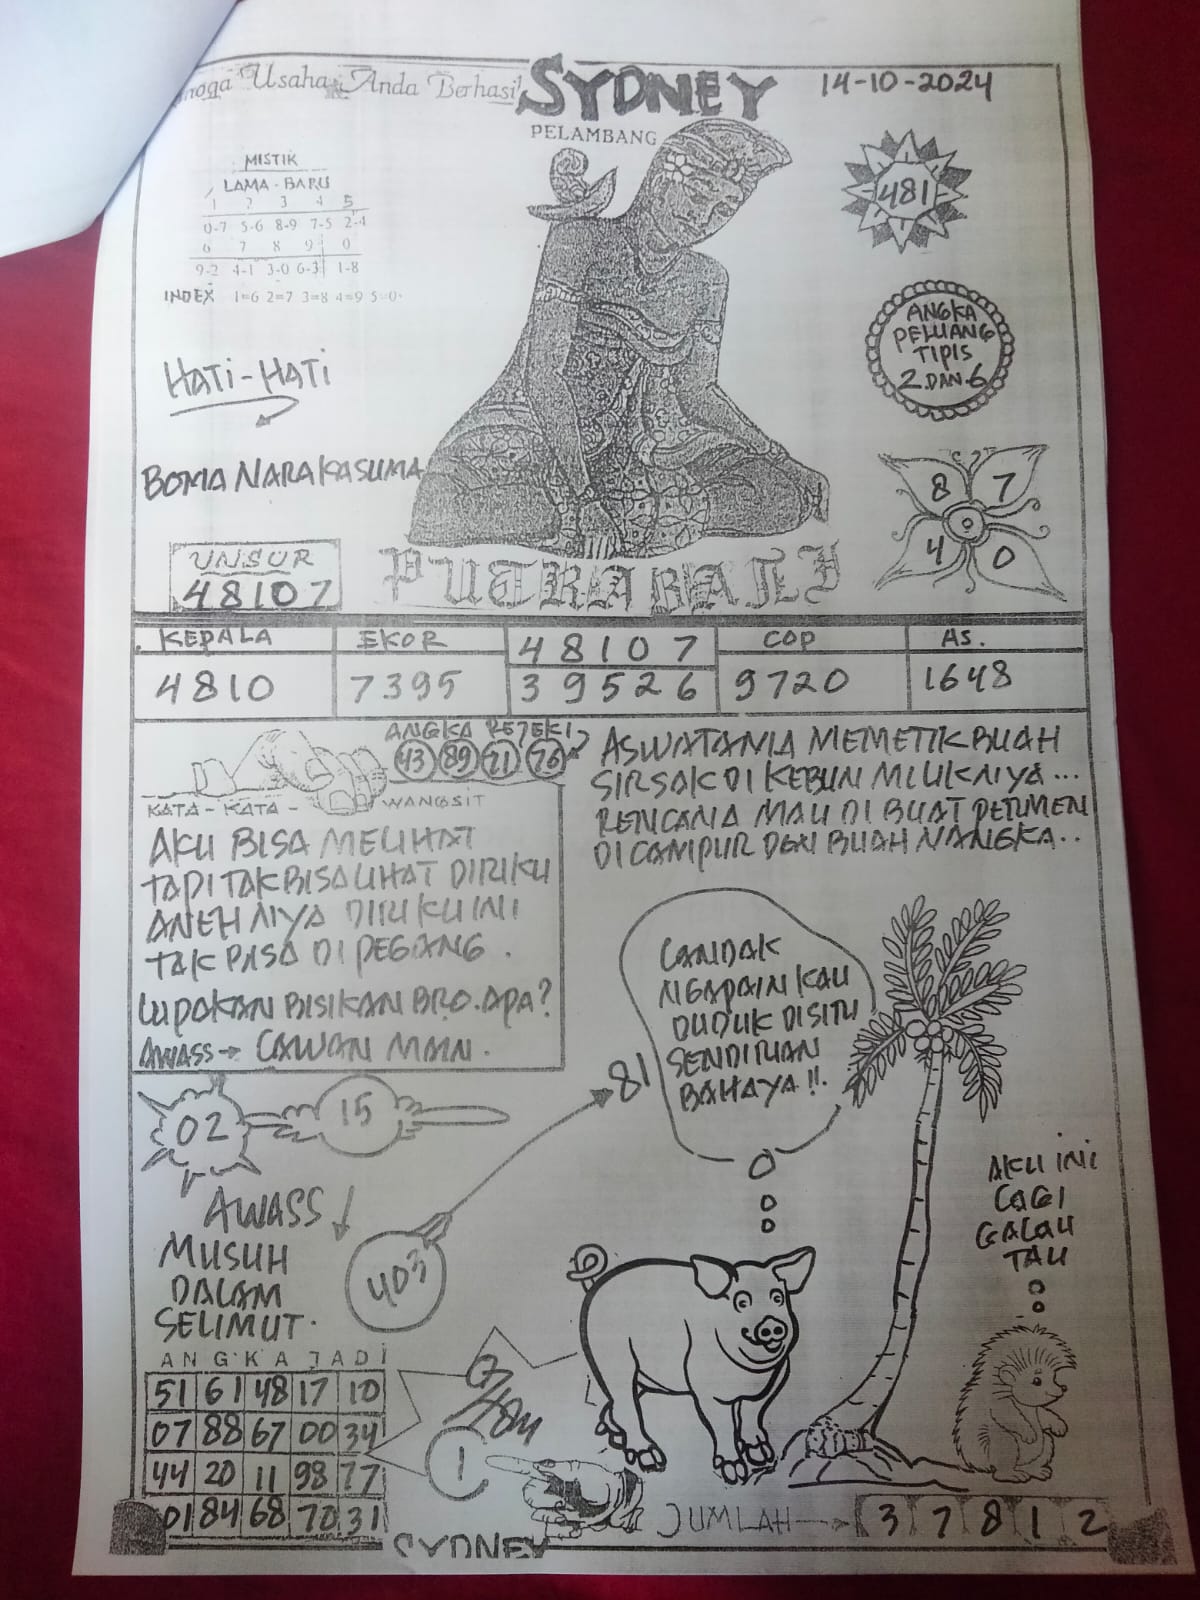 Usaha Anda Berhasil
SYDNEY
14-10-2024
PELAMBANG
MISTIK
LAMA - BARU
1 2 3 4 5
0-7 5-6 8-9 7-5 2-4
6 7 8 9 0
9-2 4-1 3-0 6-3 1-8
INDEX 1=6 2=7 3=8 4=9 5=0
481
ANGKA
PELUANG
TIPIS
2 DAN 6
HATI-HATI
BOMA NARAKASUMA
8 7
4 0
UNSUR
48107
PUTRA BALI
KEPALA EKOR 48107 COP AS.
4810 7395 39526 9720 1648
ANGKA REJEKI
43 89 21 76
KATA - KATA - WANGSIT
AKU BISA MELIHAT
TAPI TAK BISA LIHAT DIRIKU
ANEH NIYA DIRIKU INI
TAK BISA DI PEGANG.
LUPAKAN BISIKAN BRO. APA?
AWASS → CAWAN MAIN.
ASWATAMA MEMETIK BUAH
SIRSAK DI KEBUN MILIKNIYA...
RENCANA MAU DI BUAT PERMEN
DI CAMPUR DGN BUAH NANGKA..
LANDAK
NGAPAIN KAU
DUDUK DISITU
SENDIRIAN
BAHAYA!!.
81
02
15
AWASS
MUSUH
DALAM
SELIMUT.
403
AKU INI
LAGI
GALAU
TAU
ANGKA JADI
51 61 48 17 10
07 88 67 00 34
44 20 11 98 77
01 84 68 70 31
1
JUMLAH → 3 7 8 1 2
SYDNEY